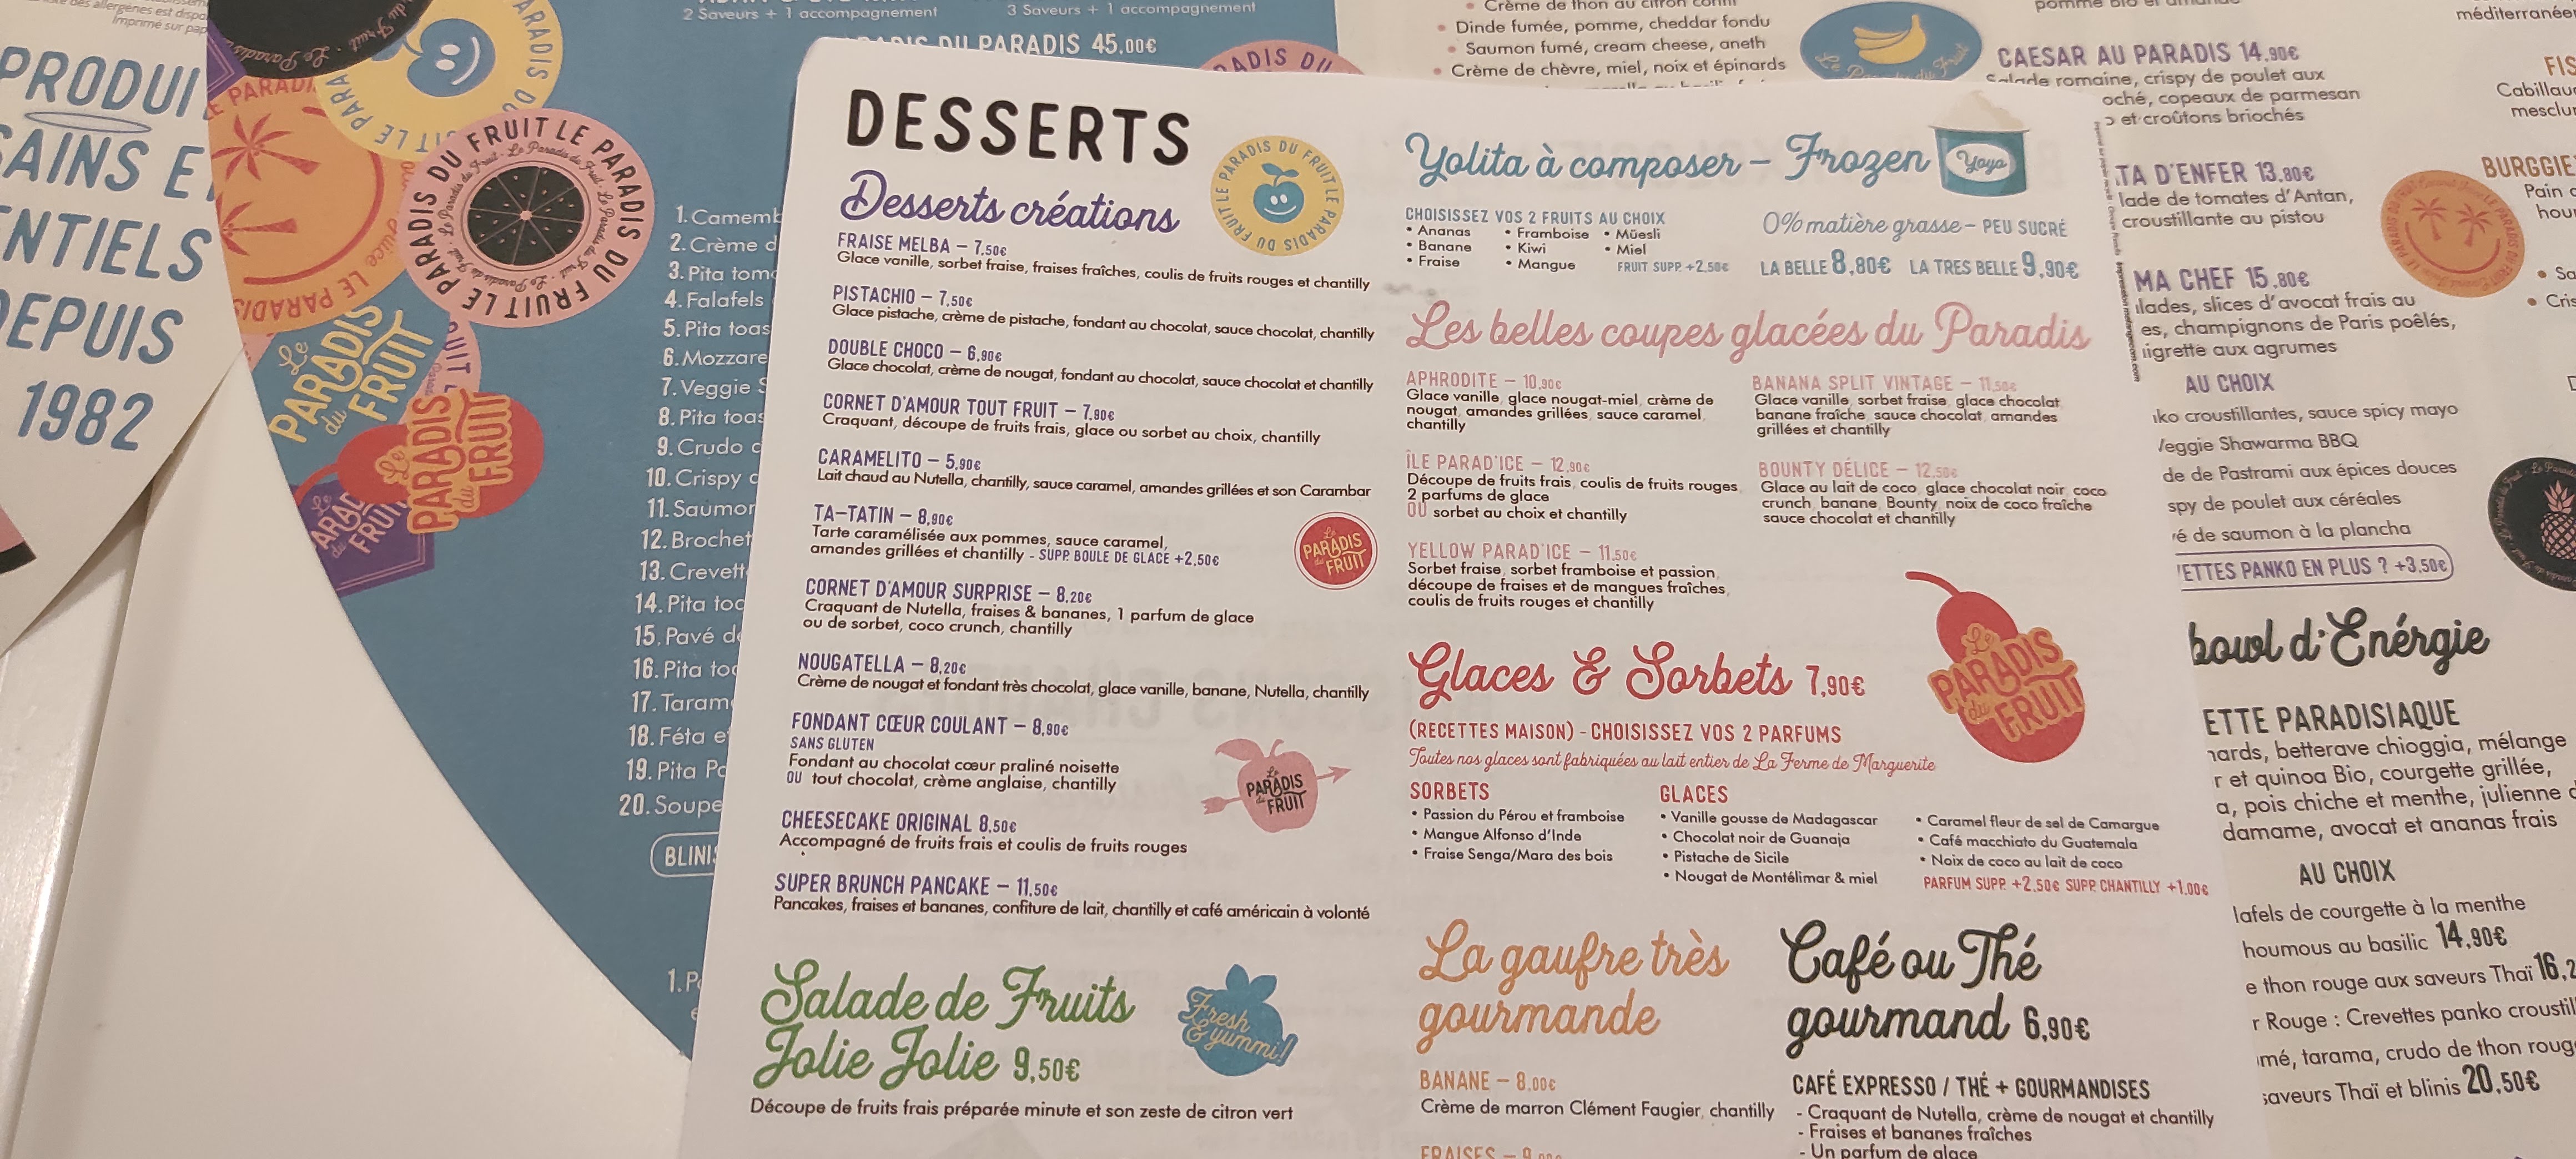 PRODUI
SAINS E
NTIELS
DEPUIS
1982
des allergènes est dispo
Imprimé sur pap
2 Saveurs + 1 accompagnement
3 Saveurs + 1 accompagnement
DU PARADIS 45,00€
LE PARADIS DU FRUIT
LE PARADIS DU FRUIT
Le Paradis du Fruit
Le PARADIS du FRUIT
Le PARADIS du FRUIT
1. Camemb
2. Crème d
3. Pita tom
4. Falafels
5. Pita toas
6. Mozzare
7. Veggie S
8. Pita toas
9. Crudo c
10. Crispy c
11. Saumor
12. Brochet
13. Crevett
14. Pita toc
15. Pavé de
16. Pita toc
17. Taram
18. Féta e
19. Pita Po
20. Soupe
BLINI
1. P
DESSERTS
LE PARADIS DU FRUIT LE PARADIS DU FRUIT
Desserts créations
FRAISE MELBA – 7,50€
Glace vanille, sorbet fraise, fraises fraîches, coulis de fruits rouges et chantilly
PISTACHIO – 7,50€
Glace pistache, crème de pistache, fondant au chocolat, sauce chocolat, chantilly
DOUBLE CHOCO – 6,90€
Glace chocolat, crème de nougat, fondant au chocolat, sauce chocolat et chantilly
CORNET D'AMOUR TOUT FRUIT – 7,90€
Craquant, découpe de fruits frais, glace ou sorbet au choix, chantilly
CARAMELITO – 5,90€
Lait chaud au Nutella, chantilly, sauce caramel, amandes grillées et son Carambar
TA-TATIN – 8,90€
Tarte caramélisée aux pommes, sauce caramel,
amandes grillées et chantilly - SUPP. BOULE DE GLACE +2,50€
Le PARADIS du FRUIT
CORNET D'AMOUR SURPRISE – 8,20€
Craquant de Nutella, fraises & bananes, 1 parfum de glace
ou de sorbet, coco crunch, chantilly
NOUGATELLA – 8,20€
Crème de nougat et fondant très chocolat, glace vanille, banane, Nutella, chantilly
FONDANT CŒUR COULANT – 8,90€
SANS GLUTEN
Fondant au chocolat cœur praliné noisette
OU tout chocolat, crème anglaise, chantilly
Le PARADIS du FRUIT
CHEESECAKE ORIGINAL 8,50€
Accompagné de fruits frais et coulis de fruits rouges
SUPER BRUNCH PANCAKE – 11,50€
Pancakes, fraises et bananes, confiture de lait, chantilly et café américain à volonté
Salade de Fruits
Jolie Jolie 9,50€
Fresh & yummi!
Découpe de fruits frais préparée minute et son zeste de citron vert
Yolita à composer – Frozen
Yoyo
CHOISISSEZ VOS 2 FRUITS AU CHOIX
• Ananas • Framboise • Müesli
• Banane • Kiwi • Miel
• Fraise • Mangue FRUIT SUPP. +2,50€
0% matière grasse – PEU SUCRÉ
LA BELLE 8,80€ LA TRES BELLE 9,90€
Les belles coupes glacées du Paradis
APHRODITE – 10,90€
Glace vanille, glace nougat-miel, crème de
nougat, amandes grillées, sauce caramel,
chantilly
BANANA SPLIT VINTAGE – 11,50€
Glace vanille, sorbet fraise, glace chocolat,
banane fraîche, sauce chocolat, amandes
grillées et chantilly
ÎLE PARAD'ICE – 12,90€
Découpe de fruits frais, coulis de fruits rouges,
2 parfums de glace
OU sorbet au choix et chantilly
BOUNTY DÉLICE – 12,50€
Glace au lait de coco, glace chocolat noir, coco
crunch, banane, Bounty, noix de coco fraîche
sauce chocolat et chantilly
YELLOW PARAD'ICE – 11,50€
Sorbet fraise, sorbet framboise et passion,
découpe de fraises et de mangues fraîches,
coulis de fruits rouges et chantilly
Le PARADIS du FRUIT
Glaces & Sorbets 7,90€
(RECETTES MAISON) - CHOISISSEZ VOS 2 PARFUMS
Toutes nos glaces sont fabriquées au lait entier de La Ferme de Marguerite
SORBETS
• Passion du Pérou et framboise
• Mangue Alfonso d'Inde
• Fraise Senga/Mara des bois
GLACES
• Vanille gousse de Madagascar
• Chocolat noir de Guanaja
• Pistache de Sicile
• Nougat de Montélimar & miel
• Caramel fleur de sel de Camargue
• Café macchiato du Guatemala
• Noix de coco au lait de coco
PARFUM SUPP. +2,50€ SUPP. CHANTILLY +1,00€
La gaufre très
gourmande
BANANE – 8,00€
Crème de marron Clément Faugier, chantilly
FRAISES – 9,00€
Café ou Thé
gourmand 6,90€
CAFÉ EXPRESSO / THÉ + GOURMANDISES
- Craquant de Nutella, crème de nougat et chantilly
- Fraises et bananes fraîches
- Un parfum de glace
• Crème de thon au citron confit
• Dinde fumée, pomme, cheddar fondu
• Saumon fumé, cream cheese, aneth
• Crème de chèvre, miel, noix et épinards
Le Paradis du Fruit
CAESAR AU PARADIS 14,90€
Salade romaine, crispy de poulet aux
oché, copeaux de parmesan
et croûtons briochés
TA D'ENFER 13,80€
lade de tomates d'Antan,
croustillante au pistou
MA CHEF 15,80€
lades, slices d'avocat frais au
es, champignons de Paris poêlés,
igrette aux agrumes
AU CHOIX
ko croustillantes, sauce spicy mayo
Veggie Shawarma BBQ
de de Pastrami aux épices douces
spy de poulet aux céréales
é de saumon à la plancha
ETTES PANKO EN PLUS ? +3,50€
bowl d'Énergie
ETTE PARADISIAQUE
nards, betterave chioggia, mélange
r et quinoa Bio, courgette grillée,
a, pois chiche et menthe, julienne d
damame, avocat et ananas frais
AU CHOIX
lafels de courgette à la menthe
houmous au basilic 14,90€
e thon rouge aux saveurs Thaï 16,2
r Rouge : Crevettes panko croustil
mé, tarama, crudo de thon roug
saveurs Thaï et blinis 20,50€
méditerranée
FIS
Cabillau
mesclu
BURGGIE
Pain
hou
• Sa
• Cris